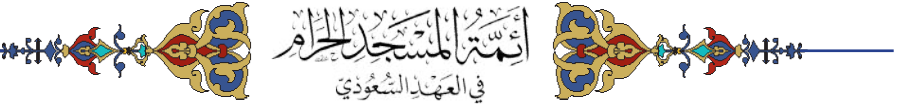 أَئِمَّةُ المَسْجِدِ الحَرَامِ
في العَهْدِ السُّعُودِيّ